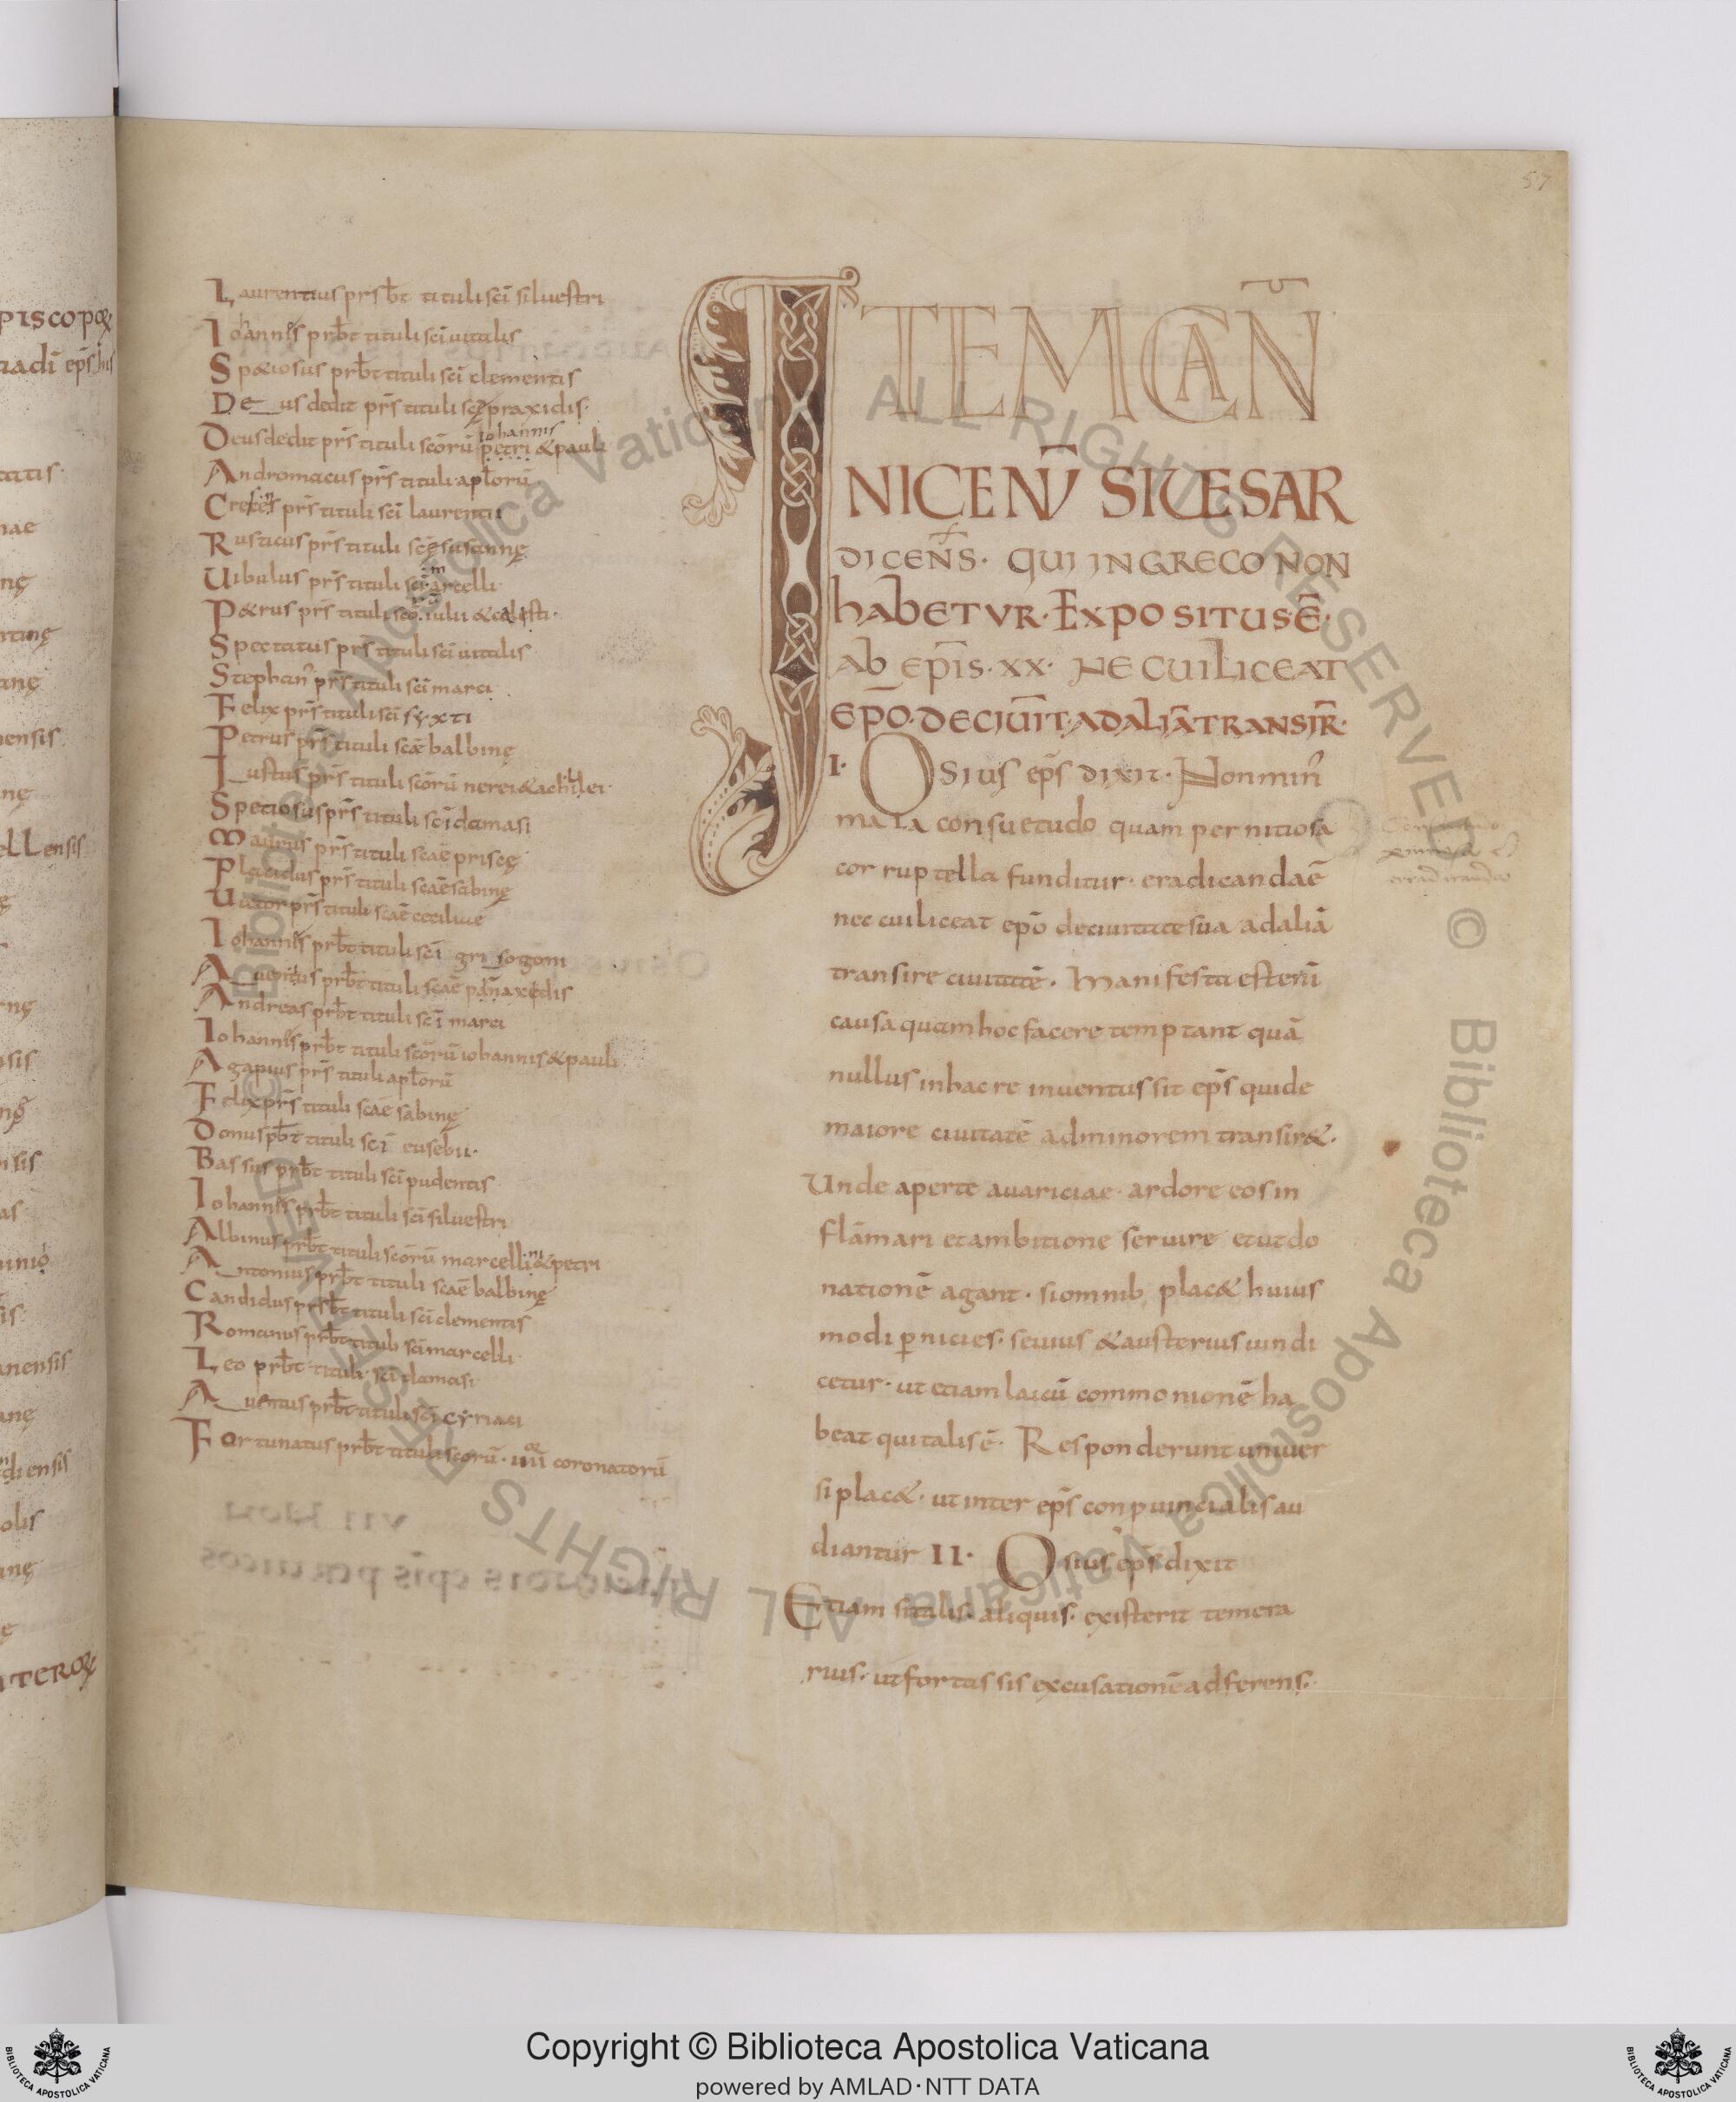 57
Laurentius prsbt tituli sci̅ siluestri
Iohannis prbt tituli sci̅ uitalis
Sp&iosus prbt tituli sci̅ clementis
Deus dedit pr̅s tituli scę praxidis·
Deusdedit pr̅s tituli sco̅ru̅ petri &pauli
iohannis
Andromacus pr̅s tituli aptoru̅
pr̅s tituli sci̅ laurentii
Rusticus pr̅s tituli scę susannę
Uibulus pr̅s tituli sci̅ marcelli
P&rus pr̅s tituli sci̅ iulii &calesti·
Spectatus pr̅s tituli sci̅ uitalis
Stephan' pr̅s tituli sci̅ marci
Felix pr̅s tituli sci̅ syxti
Petrus pr̅s tituli scae̅ balbinę
Iustus pr̅s tituli sco̅ru̅ nerei &achillei·
Speciosus pr̅s tituli sci̅ damasi
Maurus pr̅s tituli scae̅ priscę
Placidus pr̅s tituli scae̅ sabinę
Uictor pr̅s tituli scae̅ ceciliae
Iohannis prbt tituli sci̅ grisogoni
prbt tituli scae̅
Andreas prbt tituli sci̅ marci
Iohannis prbt tituli sco̅ru̅ iohannis &pauli
Agapius pr̅s tituli aptoru̅
Felix pr̅s tituli scae̅ sabinę
Donus pbt tituli sci̅ eusebii·
Bassus prbt tituli sci̅ pudentis
Iohannis prbt tituli sci̅ siluestri
Albinus prbt tituli sco̅ru̅ marcellini &petri
Antonius prbt tituli scae̅ balbinę
Candidus prsbt tituli sci̅ clementis
Romanus prbt tituli sci̅ marcelli
Leo prbt tituli sci̅ damasi
Auentus prbt tituli sci̅ cyriaci
Fortunatus prbt tituli scoru̅ · iiii coronatoru̅
ITEM CAN̅
NICENU̅ SIUE SAR
DICEN̅S· QUI IN GRECO NON
HABETVR· EXPOSITUS E̅·
AB EPI̅S· XX· NE CUI LICEAT
EPO̅· DE CIUIT̅· AD ALIA̅ TRANSIR̅·
I· OSIUS ep̅s DIXIT· Non min'
mala consuetudo quam pernitiosa
corruptella funditur· eradicanda e̅
nec cui liceat epo̅ deciuitate sua adalia̅
transire ciuitate̅· Manifesta esteni̅
causa quam hoc facere temptant qua̅
nullus inhac re inuentus sit ep̅s quide
maiore ciuitate̅ adminorem transir&·
Unde aperte auariciae· ardore eos in
fla̅mari etambitione seruire et ut do
natione̅ agant· si omnib plac& huius
modi p̱nicies· seuius &austerius uindi
cetur· ut etiam laicu̅ commonione̅ ha
beat qui talis e̅· Responderunt uniuer
si plac&· ut inter ep̅s conpuincialis au
diantur II· Osius ep̅s dixit
Etiam si talis· aliquis· existerit temera
rius· ut fortassis excusatione̅ adferens·
Copyright © Biblioteca Apostolica Vaticana
powered by AMLAD·NTT DATA